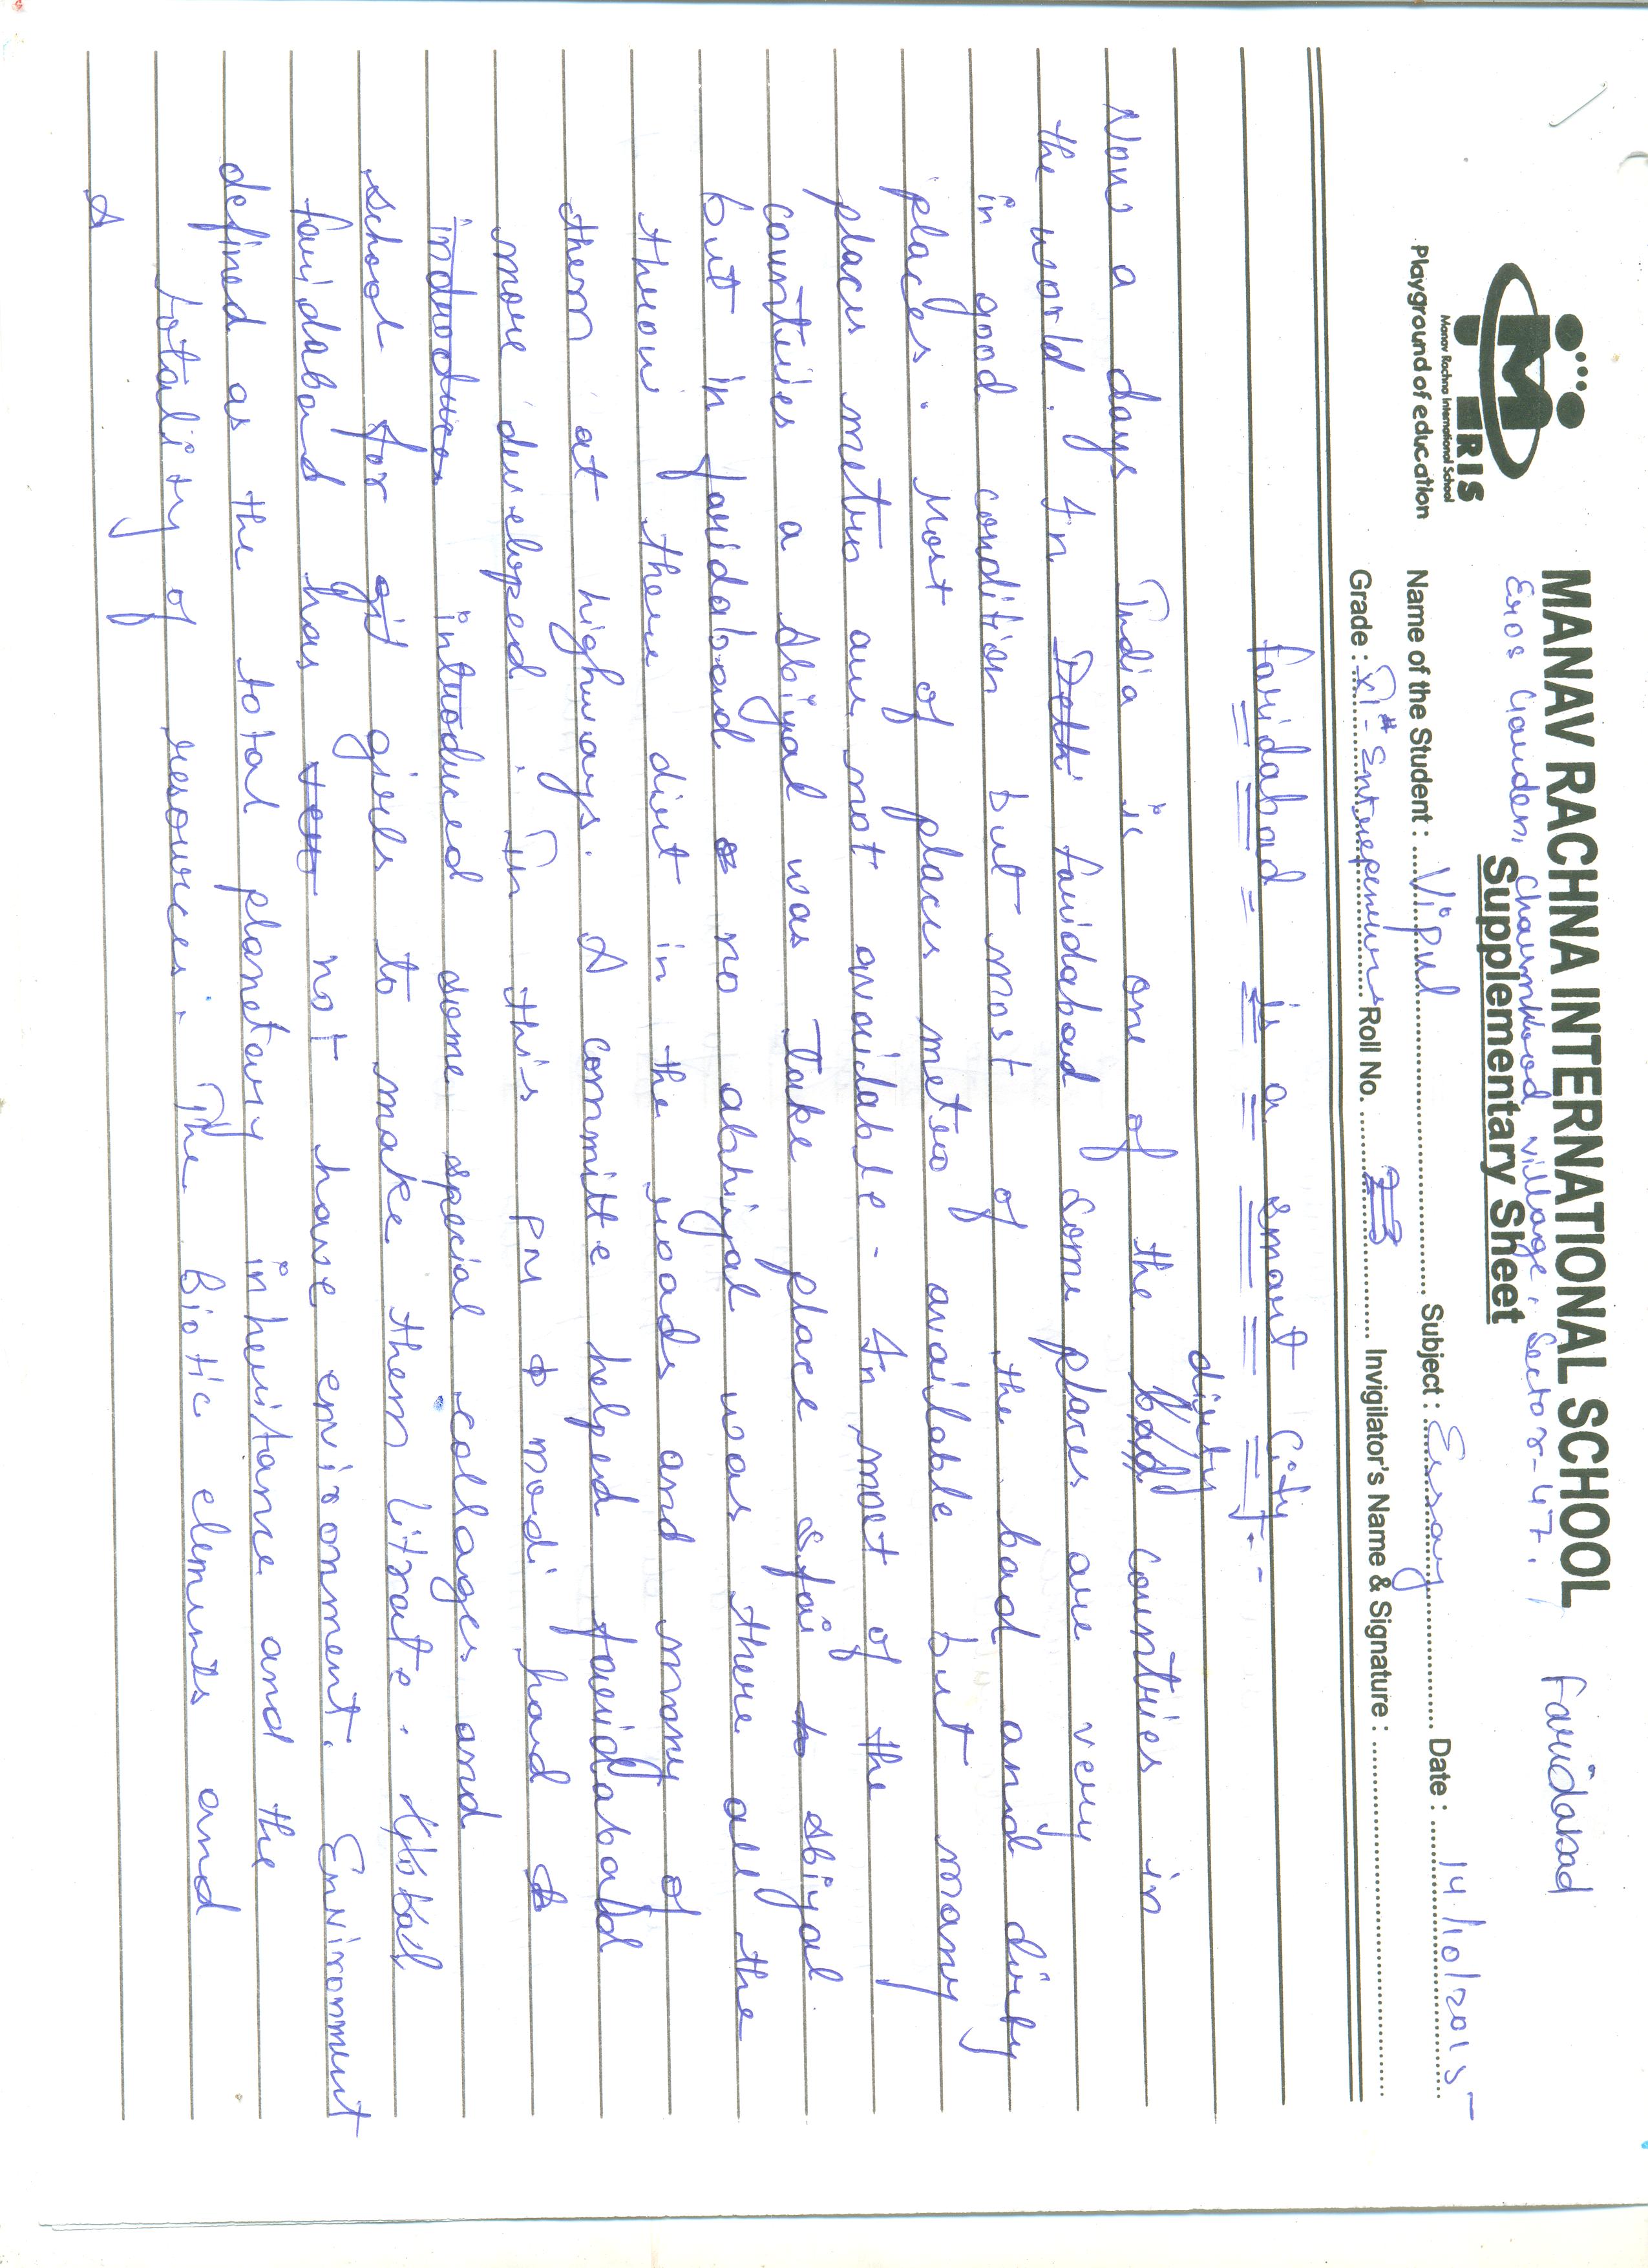 MANAV RACHNA INTERNATIONAL SCHOOL
Faridabad
Eros Garden, Charmkhood village, Sector-47,
Supplementary Sheet
MRIS
Manav Rachna International School
Playground of education
Name of the Student : Vipul Subject : Essay Date : 14/10/2015
Grade : XI - Enterepeneurs Roll No. Invigilator's Name & Signature :
Faridabad is a smart City
dirty
Now a days India is one of the bad countries in
the world. In Delhi faridabad some places are very
in good condition but most of the bad and dirty
places. Most of places metro available but many
places metro are not avaidable. In most of the
countries a Abiyal was take place sfai to abiyal
but in faridabad no abhiyal was there all the
throw there dirt in the roads and many of
them at highways. A committe helped faridabad
more developed. In this PM modi had
introduces introduced some special collages and
school for girl girls to make them litrate.
faridabad has not have environment. Environment
defined as the total planetary inheritance and the
totality of resources. The Biotic elements and
A